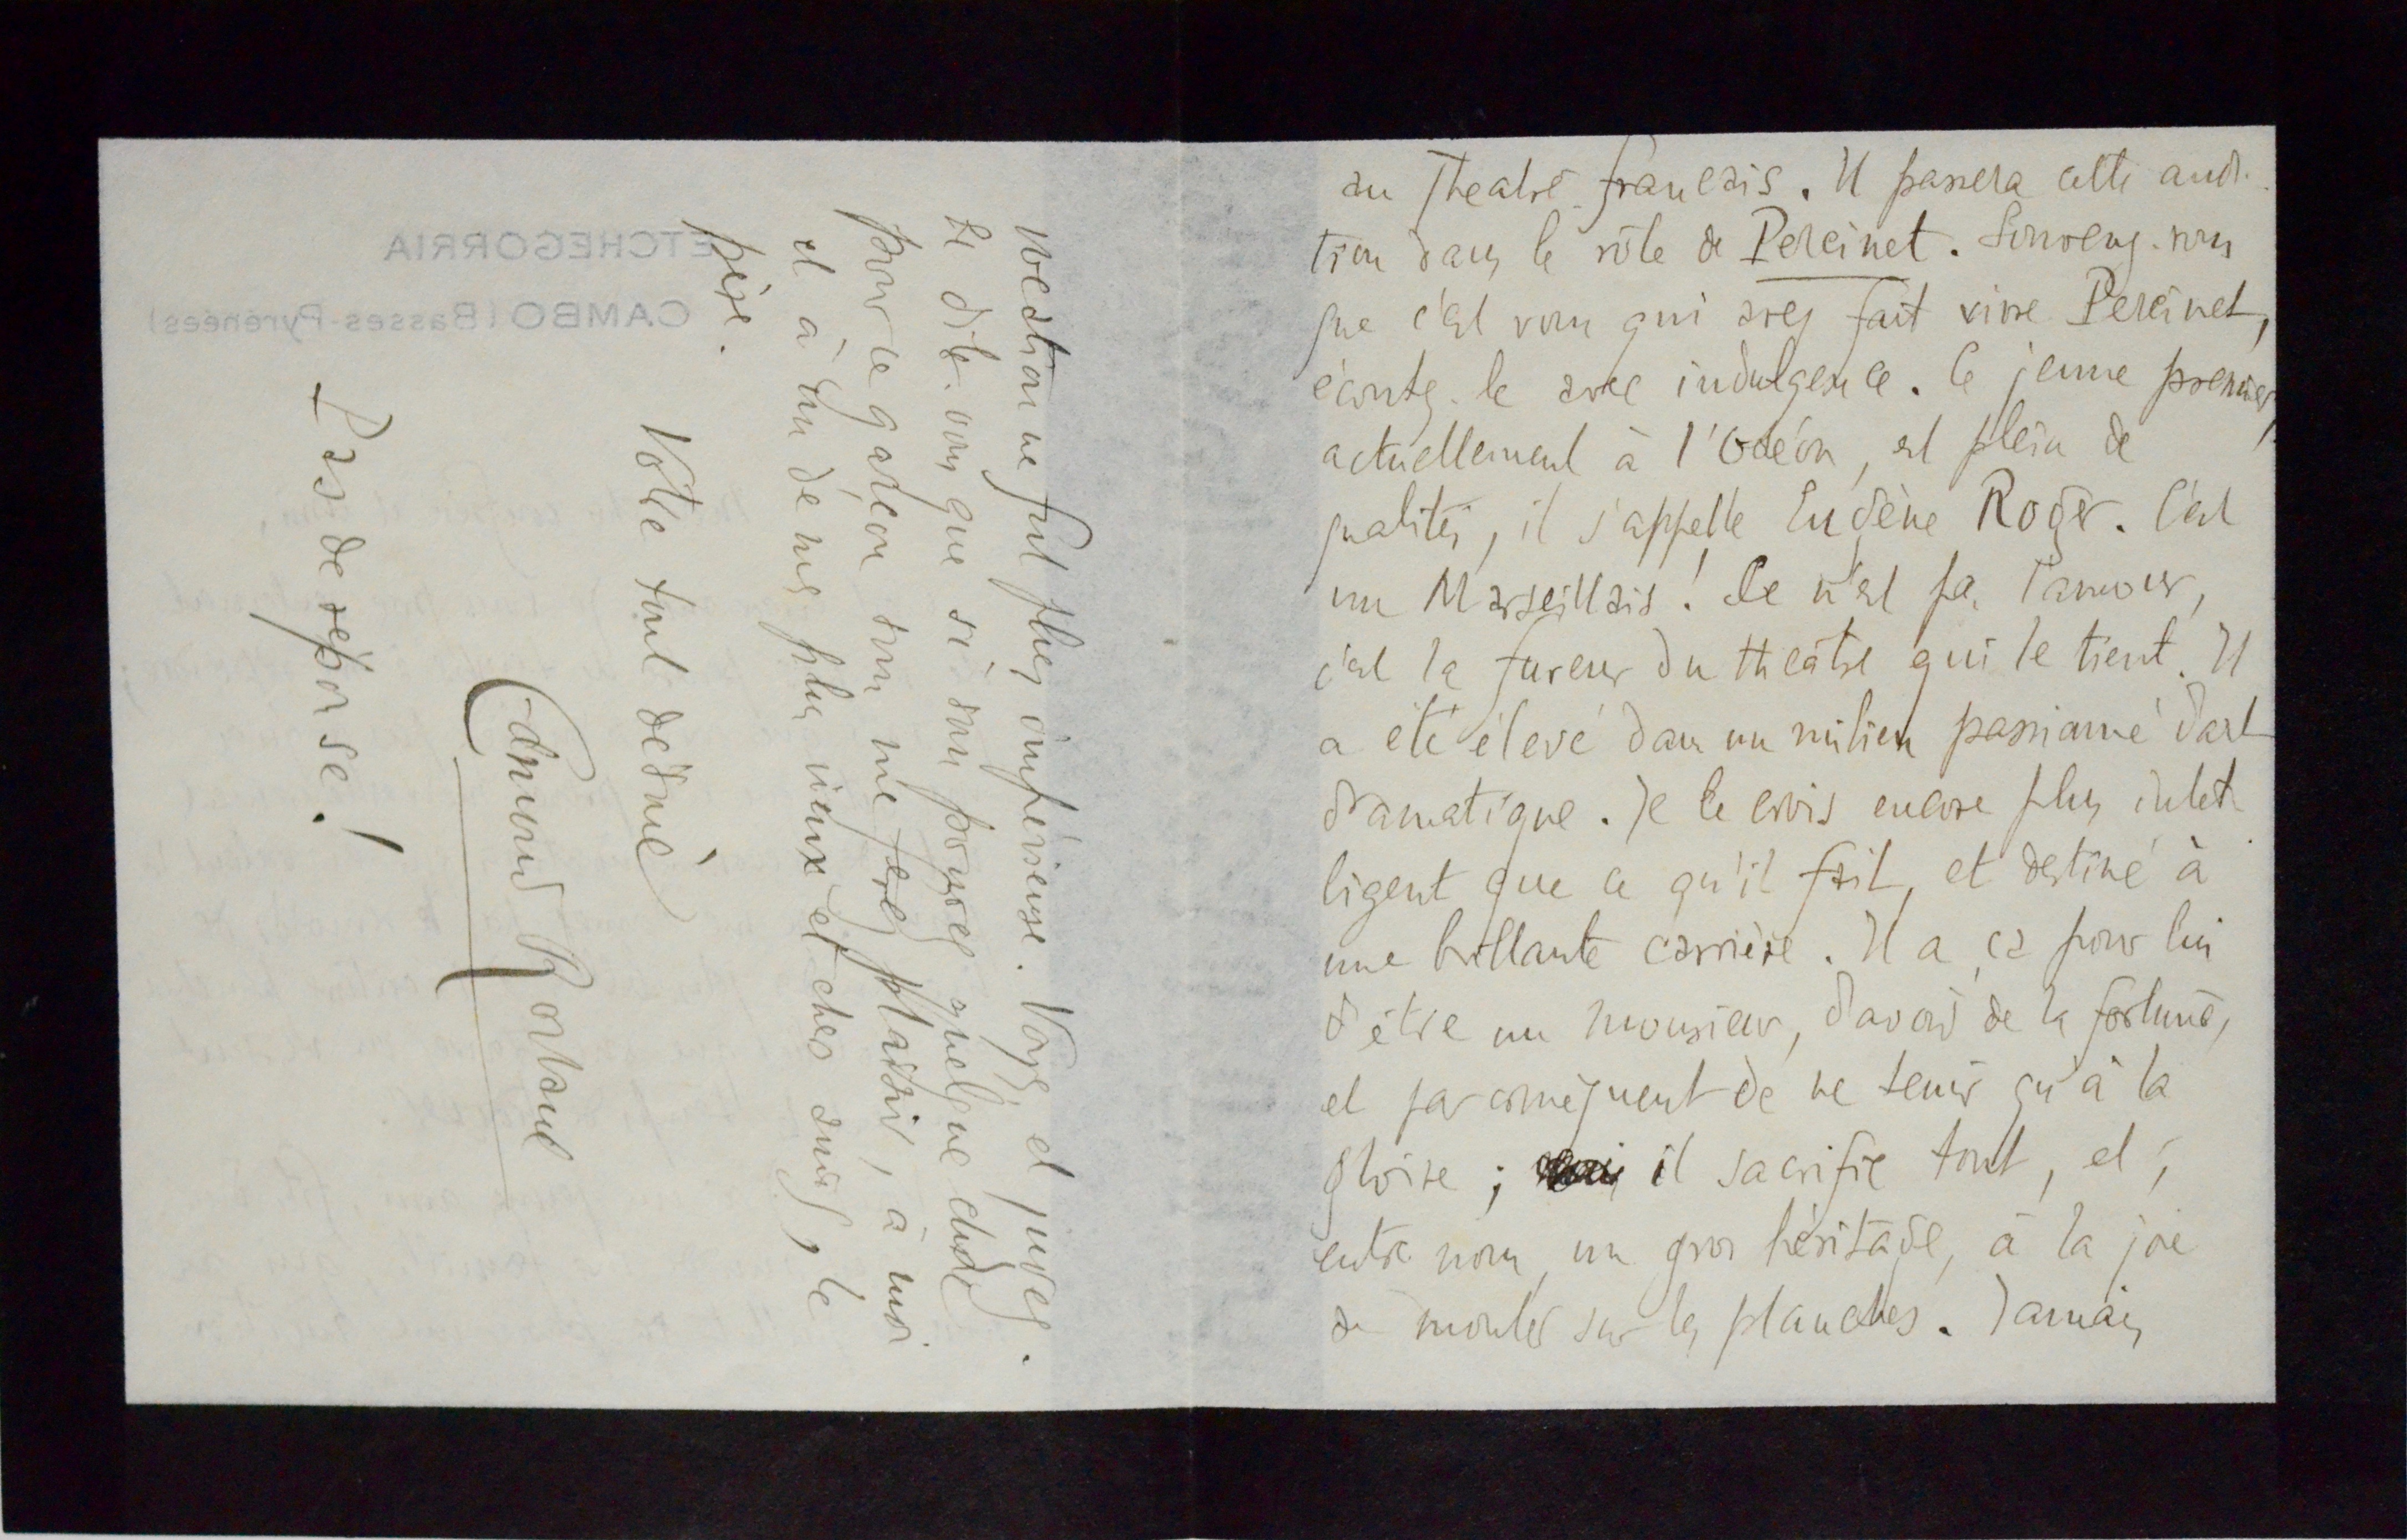 au Theatre-français. Il passera cette audi-
tion dans le rôle de Percinet. Souvenez-vous
que c'est vous qui avez fait vivre Percinet,
écoutez-le avec indulgence. Ce jeune premier,
actuellement à l'Odéon, est plein de
qualités, il s'appelle Eugène Roger. C'est
un Marseillais! Ce n'est pas l'amour,
c'est la fureur du théâtre qui le tient. Il
a été élevé dans un milieu passionné d'art
dramatique. Je le crois encore plus intel-
ligent que ce qu'il fait, et destiné à
une brillante carrière. Il a ça pour lui
d'être un monsieur, d'avoir de la fortune,
et par conséquent de ne tenir qu'à la
gloire; il sacrifie tout, et,
entre nous, un gros héritage, à la joie
de monter sur les planches. Jamais
vocation ne fut plus impérieuse. Voyez et jugez.
Et dites-vous que si vous pouvez quelque chose
pour ce garçon vous me ferez plaisir, à moi
et à un de mes plus vieux et chers amis, le
père.
Votre tout dévoué
Edmond Rostand
Pas de réponse!
ETCHEGORRIA
CAMBO (Basses-Pyrénées)